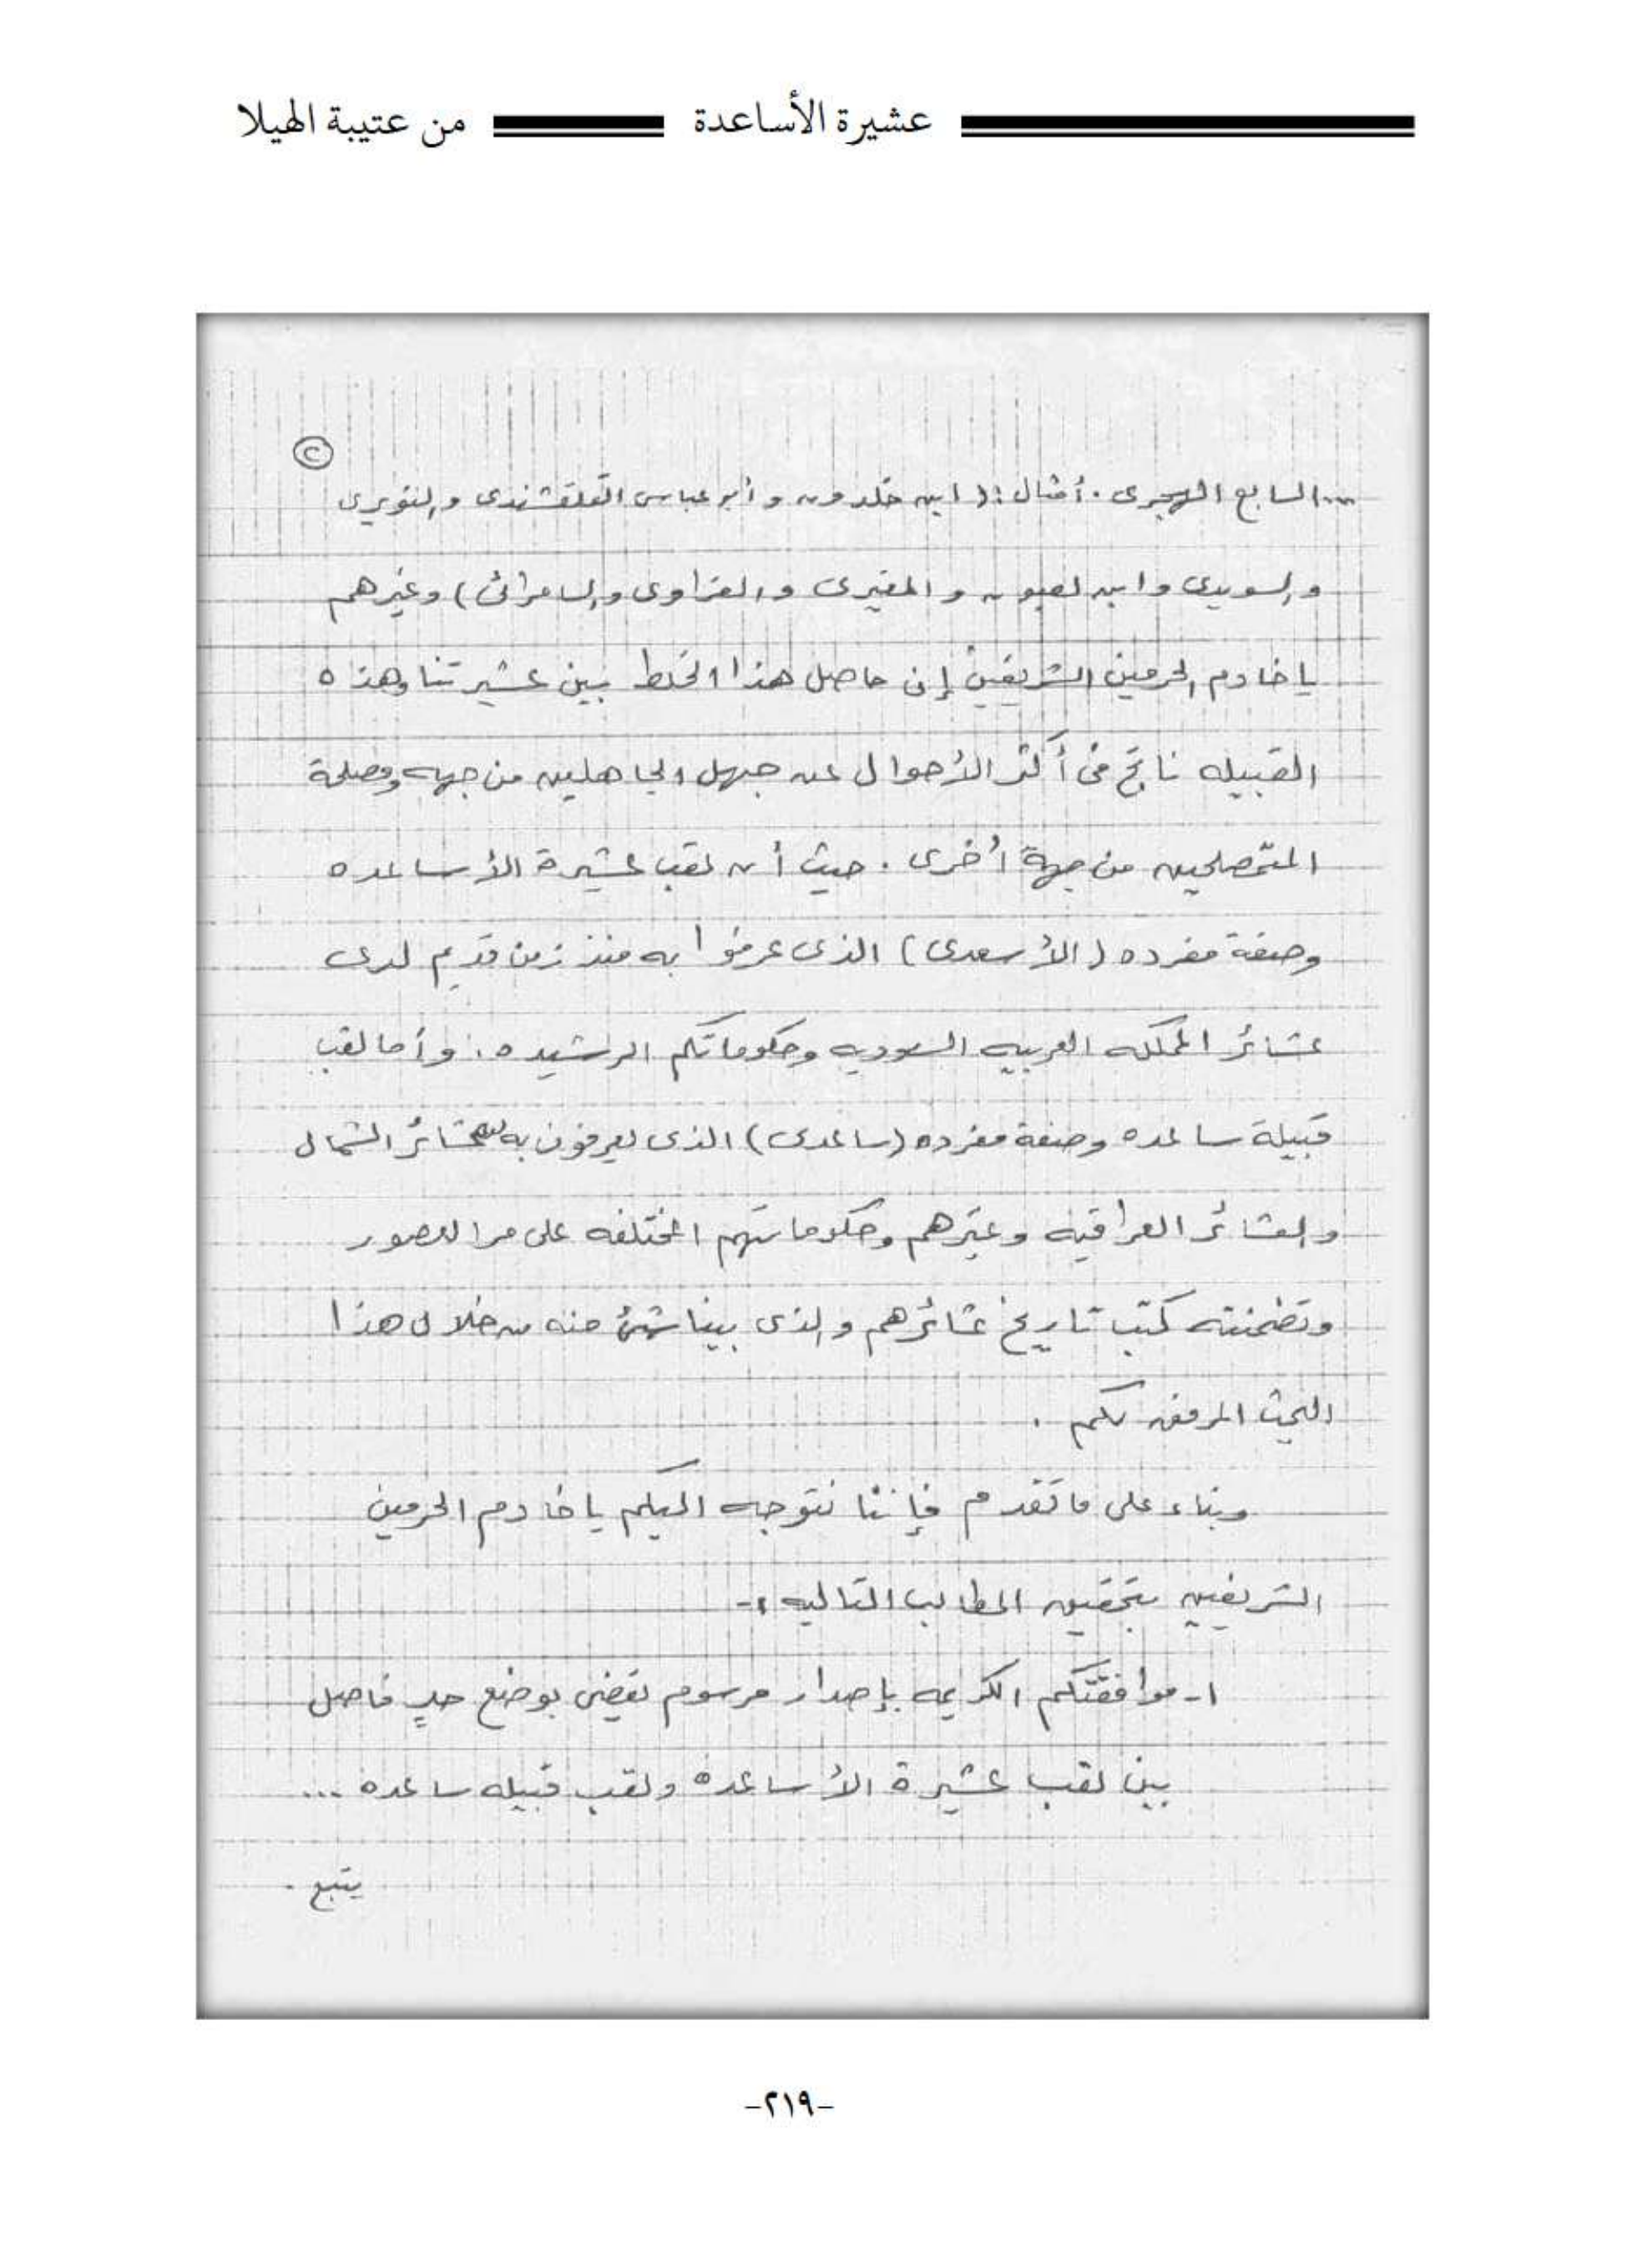 عشيرة الأساعدة من عتيبة الهيلا
٢
... السابع الهجرى . أمثال : ( ابن خلدون و أبو عباس القلقشندى والنويرى
والسويدى وابن لعبون و المغيرى والعزاوى والسامرائى ) وغيرهم
يا خادم الحرمين الشريفين إن حاصل هذا الخلط بين عشيرتنا وهذه
القبيله ناتج فى أكثر الأحوال عن جهل الجاهلين من جهه ومصلحة
المتمصلحين من جهة أخرى . حيث أن لقب عشيرة الأساعده
وصفة مفرده ( الأسعدى ) الذى عرفوا به منذ زمن قديم لدى
عشائر المملكه العربيه السعوديه وحكوماتكم الرشيده . وأما لقب
قبيلة ساعده وصفة مفرده ( ساعدى ) الذى يعرفون به عشائر الشمال
والعشائر العراقيه وغيرهم وحكوماتهم المختلفه على مر العصور
وتضمنته كتب تاريخ عشائرهم والذى بينا شئ منه من خلال هذا
البحث المرفق لكم .
وبناء على ما تقدم فإننا نتوجه اليكم يا خادم الحرمين
الشريفين بتحقيق المطالب التاليه :-
١- موافقتكم الكريمه بإصدار مرسوم يقضى بوضع حدٍ فاصل
بين لقب عشيرة الأساعده ولقب قبيله ساعده ...
يتبع .
-٢١٩-